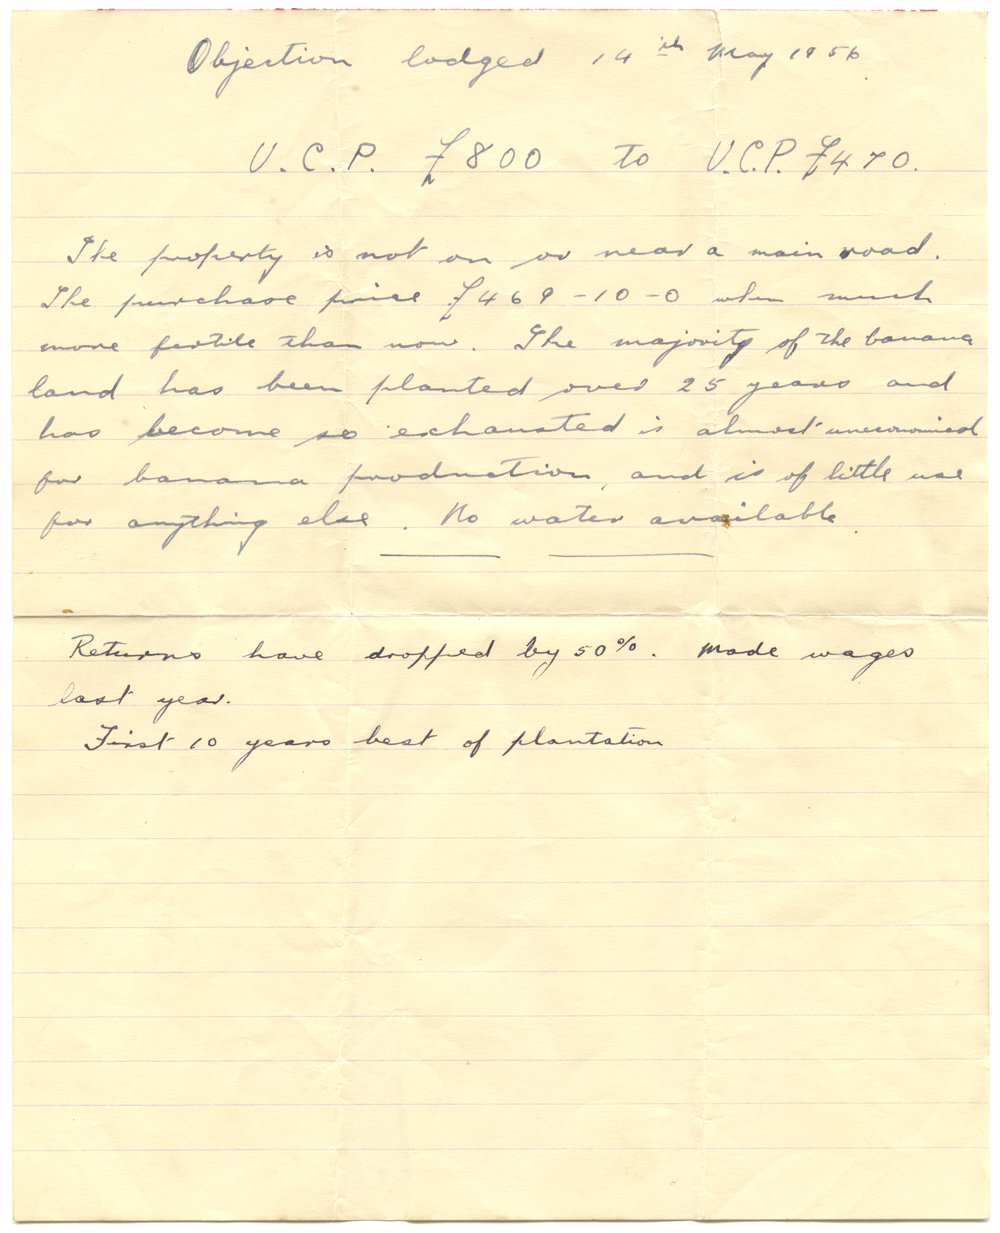 Objection lodged 14th May 1956
U.C.P. £800 to U.C.P. £470.
The property is not on or near a main road.
The purchase price £469-10-0 when much
more fertile than now. The majority of the banana
land has been planted over 25 years and
has become so exhausted is almost uneconomical
for banana production, and is of little use
for anything else. No water available.
Returns have dropped by 50%. Made wages
last year.
First 10 years best of plantation